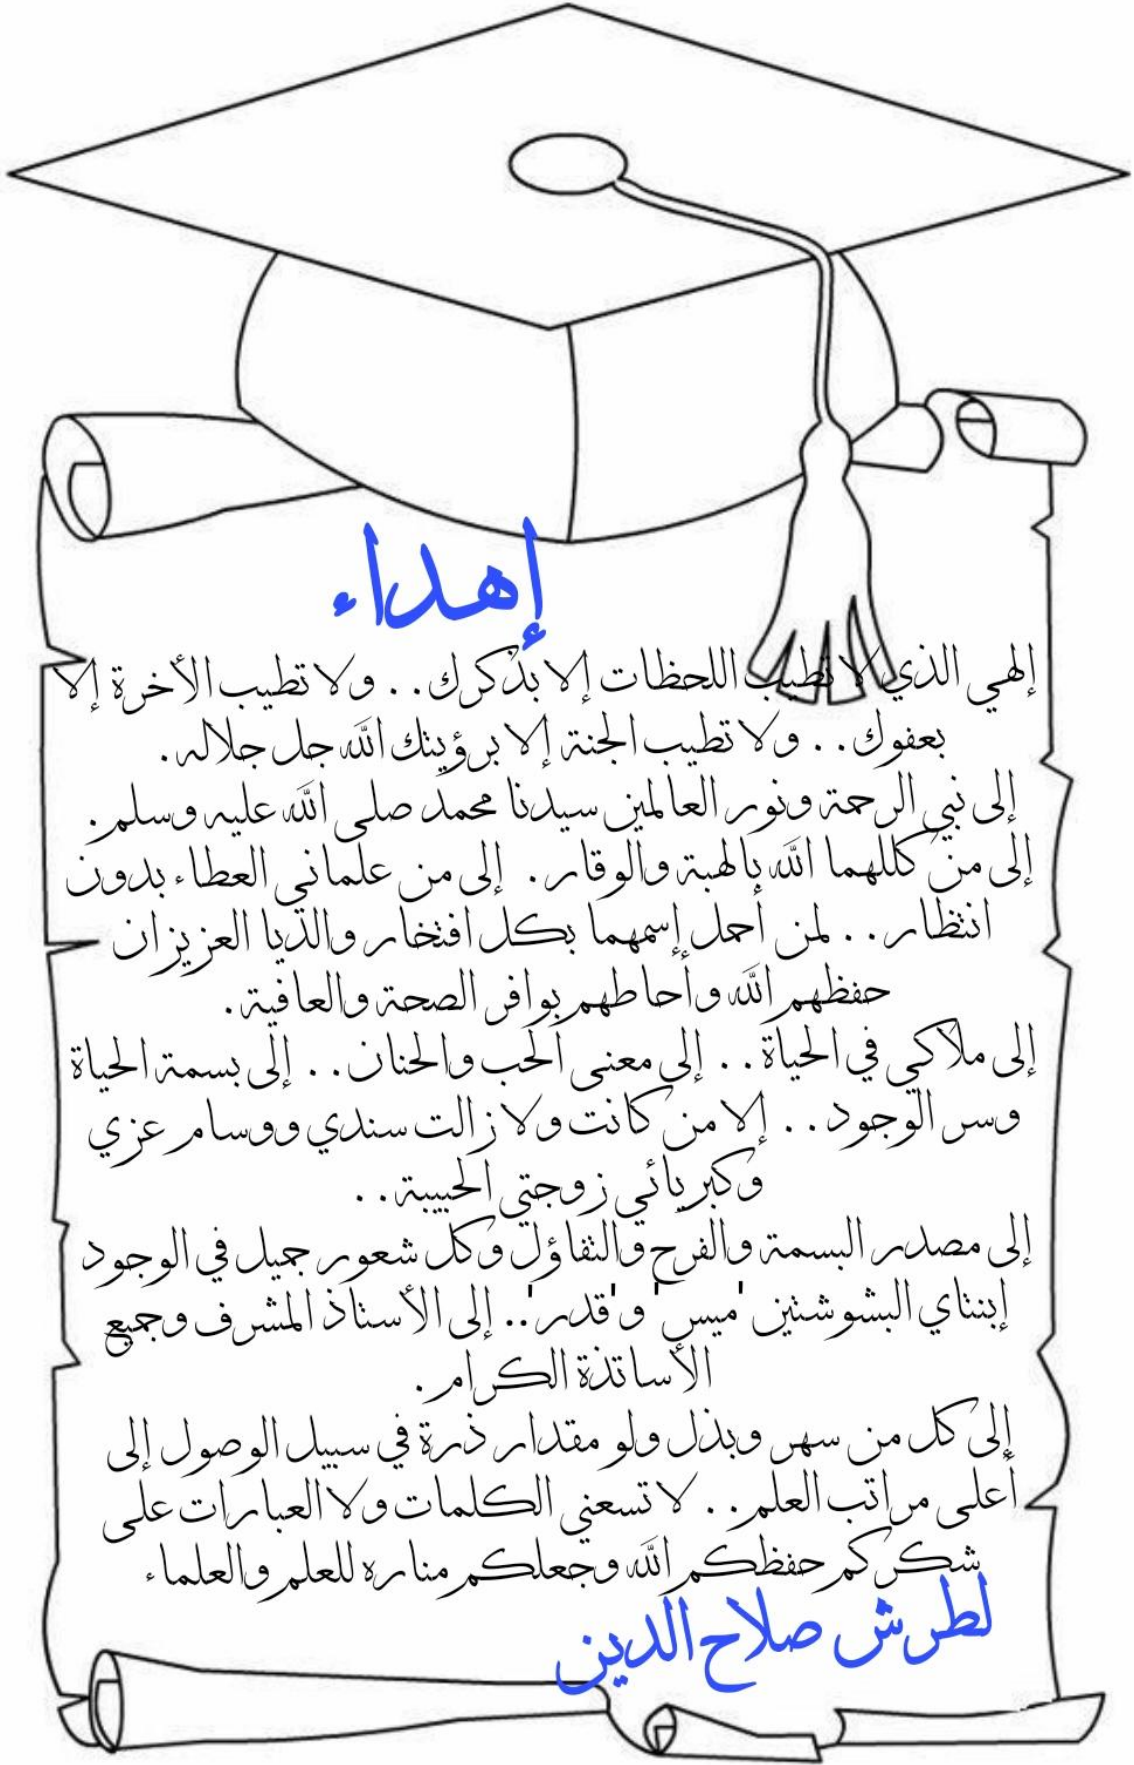 إهداء
إلهي الذي لا تطيب اللحظات إلا بذكرك.. ولا تطيب الأخرة إلا
بعفوك.. ولا تطيب الجنة إلا برؤيتك الله جل جلاله.
إلى نبي الرحمة ونور العالمين سيدنا محمد صلى الله عليه وسلم.
إلى من كللهما الله بالهبة والوقار. إلى من علماني العطاء بدون
انتظار.. لمن أحمل إسمهما بكل افتخار والديا العزيزان
حفظهم الله وأحاطهم بوافر الصحة والعافية.
إلى ملاكي في الحياة.. إلى معنى الحب والحنان.. إلى بسمة الحياة
وسر الوجود.. إلا من كانت ولا زالت سندي ووسام عزي
وكبريائي زوجتي الحبيبة..
إلى مصدر البسمة والفرح والتفاؤل وكل شعور جميل في الوجود
إبنتاي البشوشتين 'ميس' و'قدر'.. إلى الأستاذ المشرف وجميع
الأساتذة الكرام.
إلى كل من سهر وبذل ولو مقدار ذرة في سبيل الوصول إلى
أعلى مراتب العلم.. لا تسعني الكلمات ولا العبارات على
شكركم حفظكم الله وجعلكم مناره للعلم والعلماء
لطرش صلاح الدين